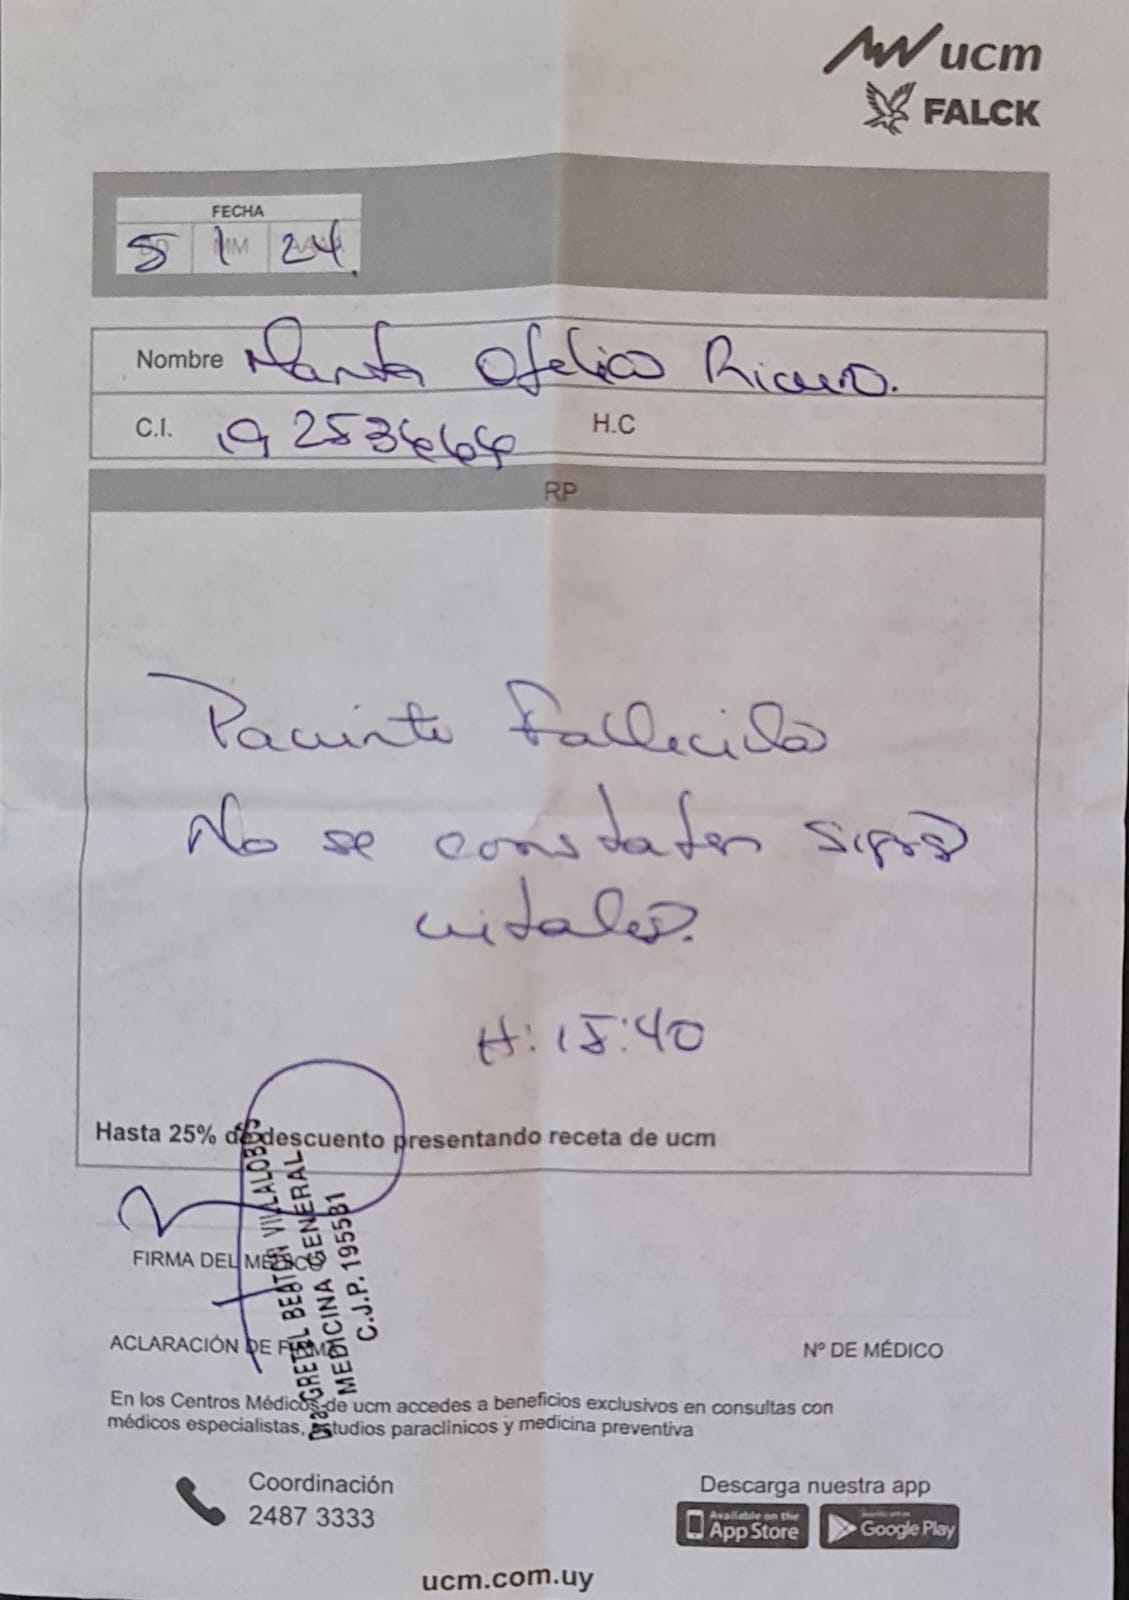 ucm
FALCK
FECHA
5 1 24
Nombre Marta Ofelia
C.I. 19253666 H.C
RP
Paciente Fallecida
No se constatan signos
vitales.
H: 15:40
Hasta 25% de descuento presentando receta de ucm
FIRMA DEL MÉDICO
ACLARACIÓN DE FIRMA Nº DE MÉDICO
Dra GRETEL BEATON VILLALOBOS
MEDICINA GENERAL
C.J.P. 195581
En los Centros Médicos de ucm accedes a beneficios exclusivos en consultas con
médicos especialistas, estudios paraclínicos y medicina preventiva
Coordinación
2487 3333
Descarga nuestra app
Available on the App Store
Google Play
ucm.com.uy